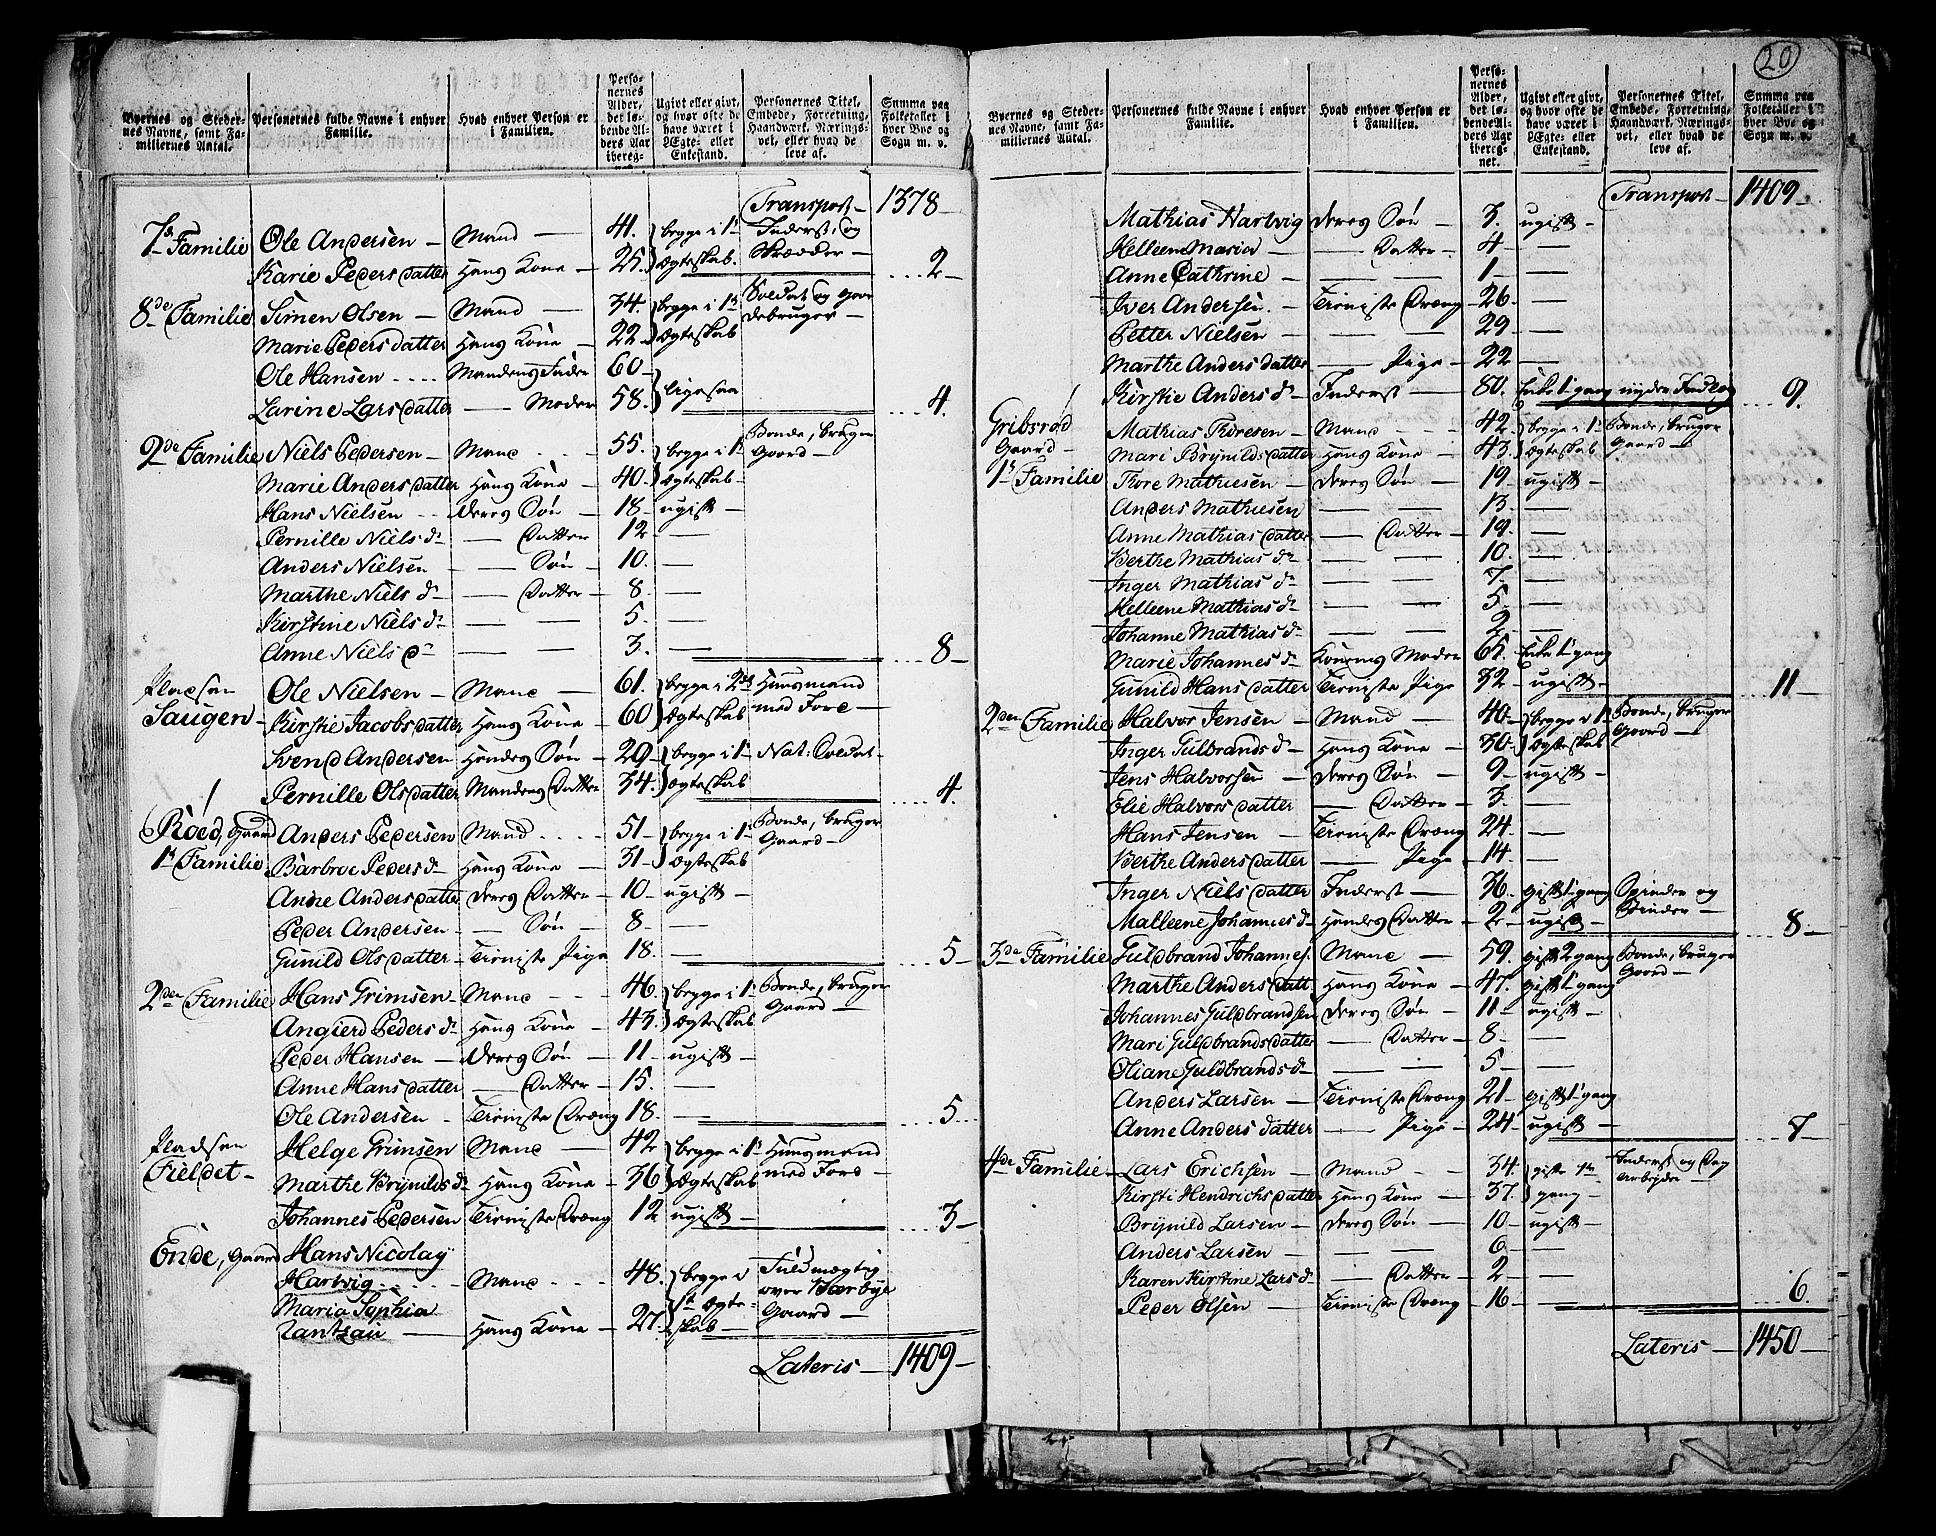 20
Byernes og Steder-
nes Navne, samt Fa-
miliernes Antal.
Personernes fulde Navne i enhver
Familie.
Hvad enhver Person er
i Familien.
Perso-
nernes
Alder,
det lø-
bende Al-
ders Aar
iberegnet.
Ugivt eller givt,
og hvor ofte de
have været i
Ægte- eller
Enkestand.
Personernes Titel,
Embede, Forretning,
Haandværk, Nærings-
vei, eller hvad de
leve af.
Summa paa
Folketallet i
hver Bye og
Sogn m. v.
Transport 1378
7de Familie Ole Andersen Mand 41. begge i 1te Inderst, og
Karie Peders datter Hans Kone 25. Ægteskab. Skrædder 2
8de Familie Simen Olsen Mand 34. begge i 1te Soldat og Gaar
Marie Peders datter Hans Kone 22 Ægteskab debruger
Ole Hansen Mandens Fader 60
Larine Lars datter Moder 58. ligesaa 4.
2de Familie Niels Pedersen Mand 55. begge i 1te Bonde, bruger
Marie Anders datter Hans Kone 40. Ægteskab Gaard
Hans Nielsen deres Søn 18 ugift
Pernille Niels dr Datter 12
Anders Nielsen Søn 10.
Marthe Niels dr Datter 8
Kirstine Niels dr 5.
Anne Niels dr 3. 8
Pladsen Ole Nielsen Mand 61. begge i 2det Huusmand
Saugen Kirstie Jacobs datter Hans Kone 60 Ægteskab med Jord
Svend Andersen Hendes Søn 29 begge i 1te Nat: Soldat
Pernille Ols datter Mandens Datter 34. Ægteskab 4.
Røed, Gaard Anders Pedersen Mand 51 begge i 1te Bonde, bruger
1te Familie Barbroe Peders dr Hans Kone 31 Ægteskab Gaard
Anne Anders datter deres Datter 10 ugift
Peder Andersen Søn 8
Gunild Ols datter Tieniste Pige 18. 5
2den Familie Hans Grimsen Mand 46. begge i 1te Bonde, bruger
Angierd Peders dr Hans Kone 43. Ægteskab Gaard
Peder Hansen deres Søn 11 ugift
Anne Hans datter Datter 15.
Ole Andersen Tieniste Dreng 18. 5
Pladsen Helge Grimsen Mand 42 begge i 1te Huusmand
Fieldet Marthe Brynilds dr Hans Kone 36 Ægteskab med Jord
Johannes Pedersen Tieniste Dreng 12 ugift 3
Ende, Gaard Hans Nicolay
Hartvig Mand 48. begge i Fuldmægtig
Maria Sophia 1te Ægte- over Bærbye
Rantzau Hans Kone 27. skab Gaard
Lateris 1409
Byernes og Steder-
nes Navne, samt Fa-
miliernes Antal.
Personernes fulde Navne i enhver
Familie.
Hvad enhver Person er
i Familien.
Perso-
nernes
Alder,
det lø-
bende Al-
ders Aar
iberegnet.
Ugivt eller givt,
og hvor ofte de
have været i
Ægte- eller
Enkestand.
Personernes Titel,
Embede, Forretning,
Haandværk, Nærings-
vei, eller hvad de
leve af.
Summa paa
Folketallet i
hver Bye og
Sogn m. v.
Transport 1409
Mathias Hartvig deres Søn 3. ugift
Helleen Maria Datter 4
Anne Cathrine 1
Iver Andersen Tieniste Dreng 26
Petter Nielsen 29
Marthe Anders datter Pige 22
Kirstie Anders dr Inderst 80. Enke 1te gang 9.
Gribsrød Mathias Thoresen Mand 42 begge i 1te Bonde, bruger
Gaard Mari Brynilds datter Hans Kone 43. Ægteskab Gaard
1te Familie Thore Mathiesen deres Søn 19 ugift
Anders Mathiesen 13
Anne Mathias datter Datter 19.
Berthe Mathias dr 10.
Inger Mathias dr 7.
Helleene Mathias dr 5.
Johanne Mathias dr 2
Marie Johannes dr Konens Moder 65. Enke 1te gang
Gunild Hans datter Tieniste Pige 32 ugift 11
2den Familie Halvor Jensen Mand 40 begge i 1te Bonde, bruger
Inger Gulbrands dr Hans Kone 30 Ægteskab Gaard
Jens Halvorsen deres Søn 9 ugift
Elie Halvors datter Datter 3.
Hans Jensen Tieniste Dreng 24
Berthe Anders datter Pige 14
Inger Niels datter Inderst 36. gift 1te gang Spinder og
Malleene Johannes dr Hendes Datter 2 ugift Binder 8
3de Familie Guldbrand Johannes. Mand 59. gift 2 gang Bonde, bruger
Marthe Anders datt Hans Kone 47. gift 1te gang Gaard
Johannes Guldbrandsen deres Søn 11 ugift
Mari Guldbrands datter Datter 8
Oliane Guldbrands dr 5
Anders Larsen Tieniste Dreng 21 gift 1te gang
Anne Anders datter Pige 24 ugift 7
4de Familie Lars Erichsen Mand 34. gifte 1te Inderst og Dag
Kirsti Hendrichs datter Hans Kone 37. gang Arbeyder
Brynild Larsen deres Søn 10 ugift
Anders Larsen 6
Karen Kirstine Lars dr Datter 2
Peder Olsen Tieniste Dreng 16 6.
Lateris 1450